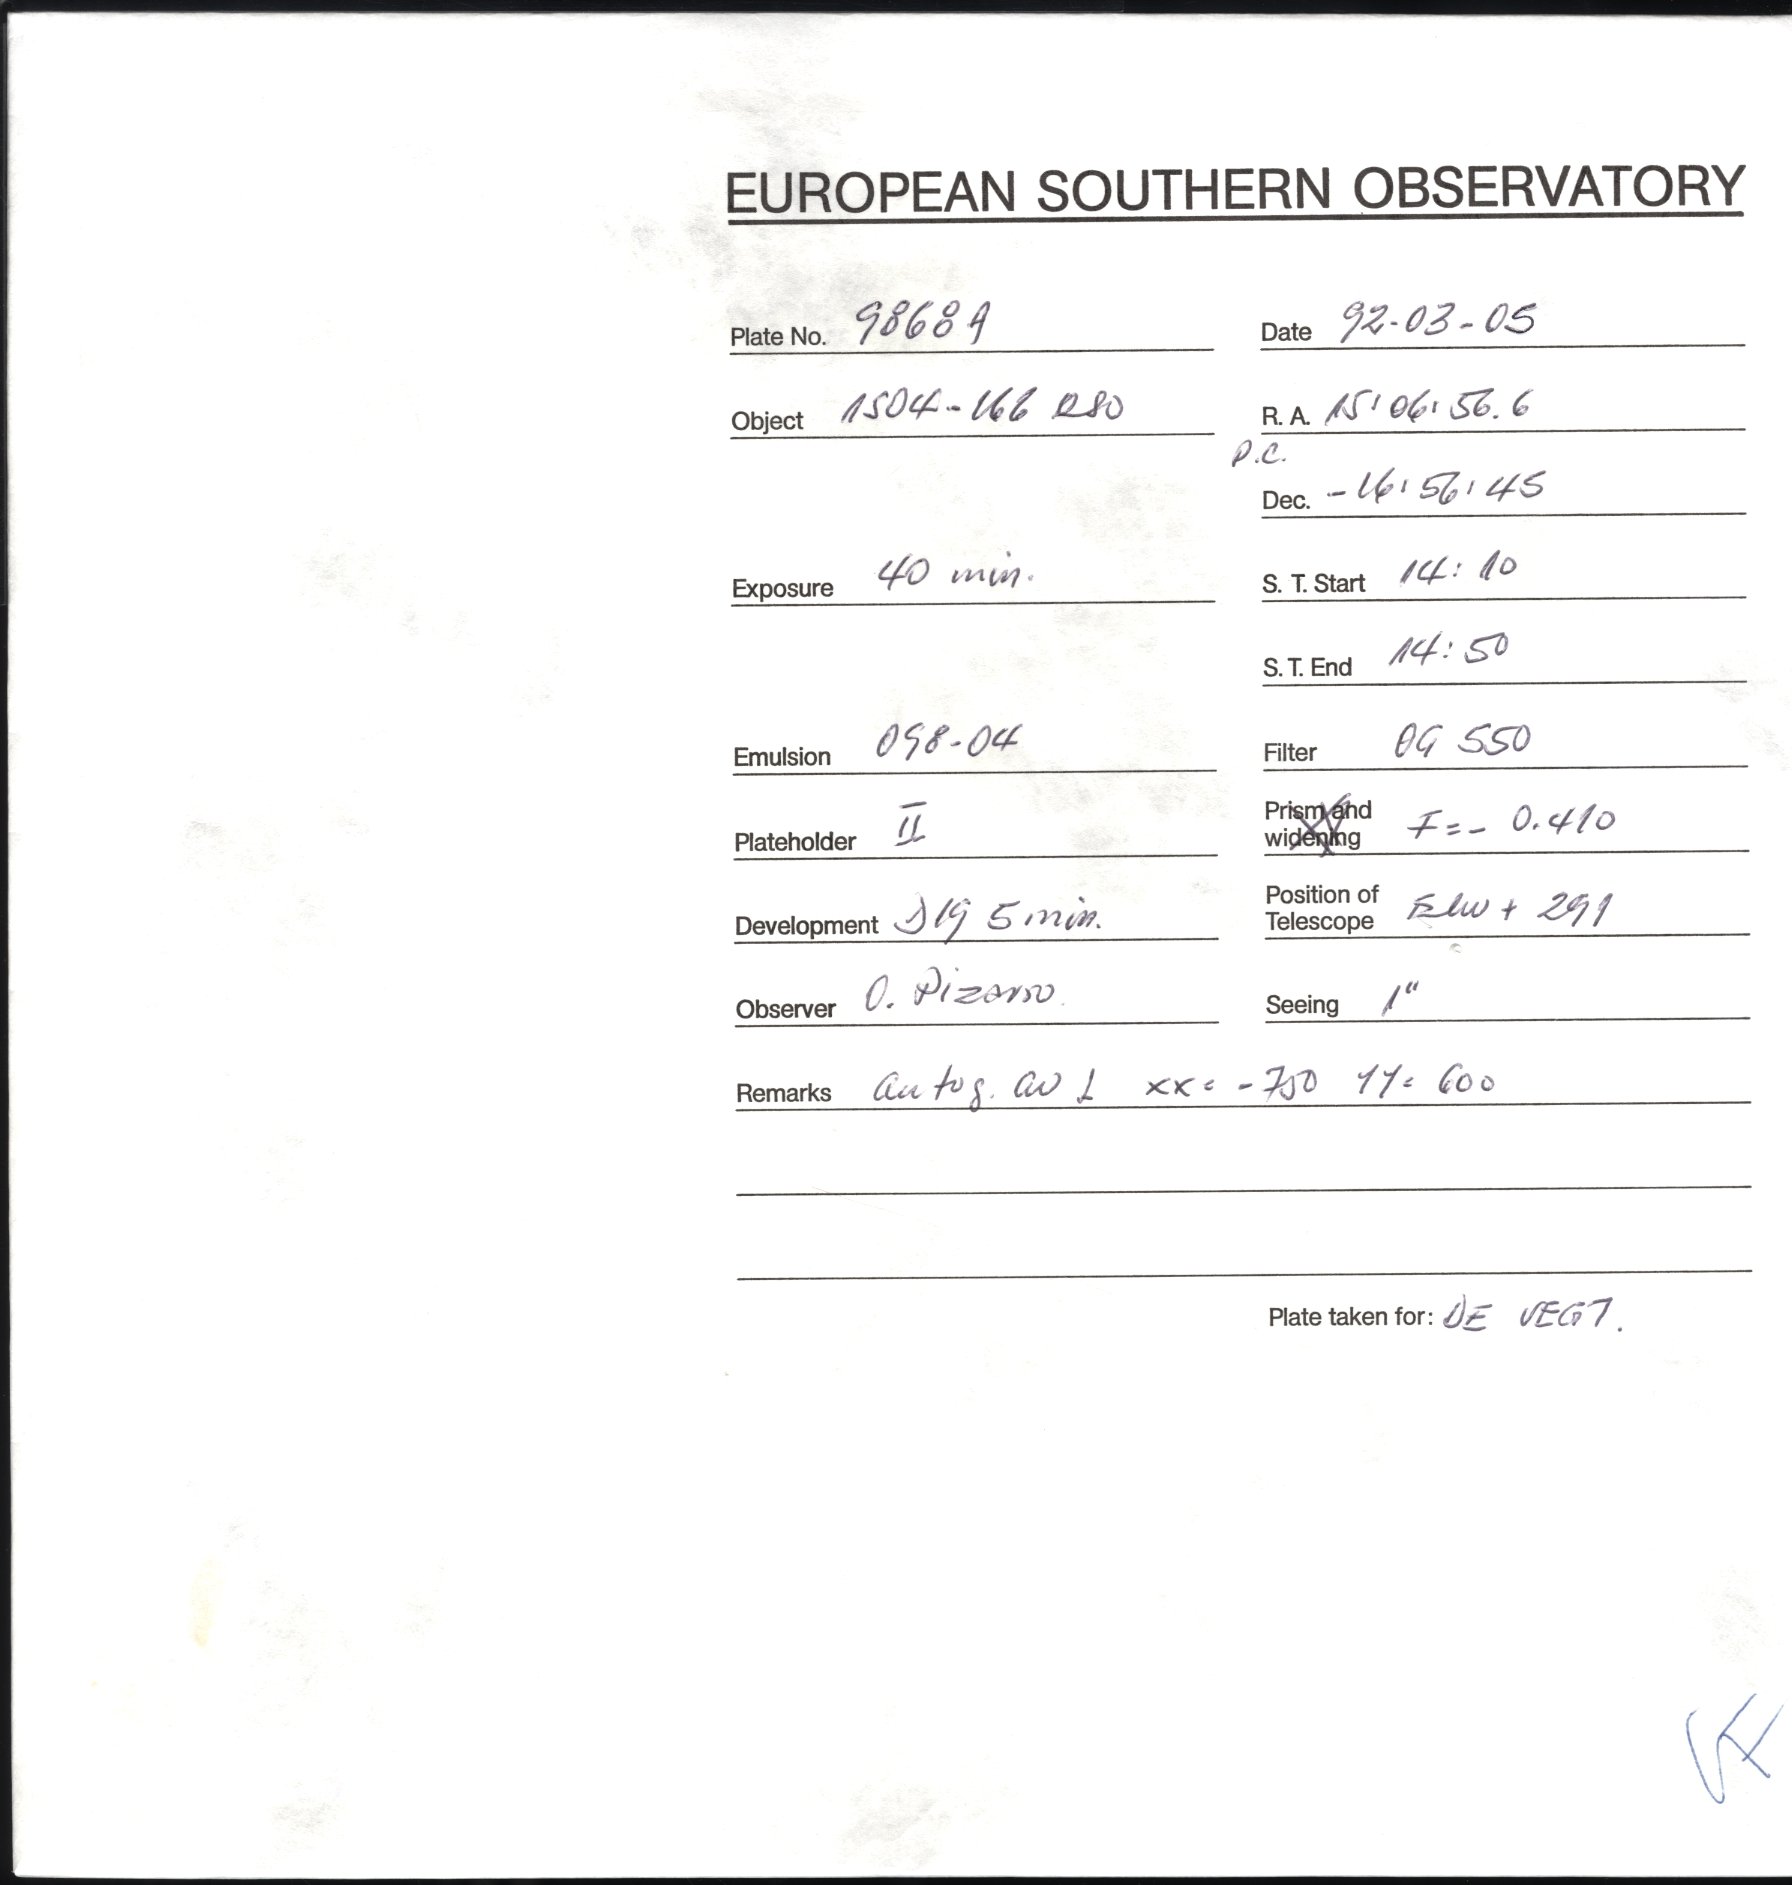 EUROPEAN SOUTHERN OBSERVATORY
Plate No. 9868A Date 92-03-05
Object 1504-166 QSO R. A. 15:06:56.6
P.C.
Dec. -16:56:45
Exposure 40 min. S. T. Start 14:10
S. T. End 14:50
Emulsion 098-04 Filter OG 550
Plateholder II Prism and widening F=- 0.410
Development D19 5 min. Position of Telescope + 291
Observer O. Pizarro. Seeing 1"
Remarks autog. xx= -750 YY= 600
Plate taken for: DE VEGT.